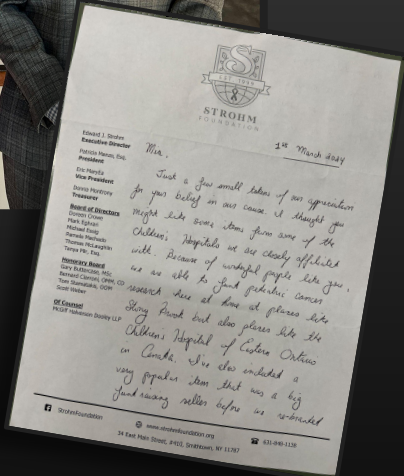 S
EST. 1984
STROHM
FOUNDATION
Edward J. Strohm
Executive Director
Patricia Manzo, Esq.
President
Eric Manylla
Vice President
Donna Montrony
Treasurer
Board of Directors
Doreen Crowe
Mark Eghrari
Michael Essig
Pamela Machado
Thomas McLaughlin
Tanya Mir, Esq.
Honorary Board
Gary Buttercase, MSc
Bernard Claironi, OPM, CD
Tom Stamatakis, OOM
Scott Weber
Of Counsel
McGiff Halverson Dooley LLP
1st March 2024
Just a few small tokens of our appreciation
for your belief in our cause. I thought you
might like some items from some of the
Children's Hospitals we are closely affiliated
with. Because of wonderful people like you,
we are able to fund pediatric cancer
research here at home at places like
Stony Brook but also places like the
Children's Hospital of Eastern Ontario
in Canada. I've also included a
very popular item that was a big
fundraising seller before we re-branded
StrohmFoundation
www.strohmfoundation.org
631-848-1138
34 East Main Street, #410, Smithtown, NY 11787